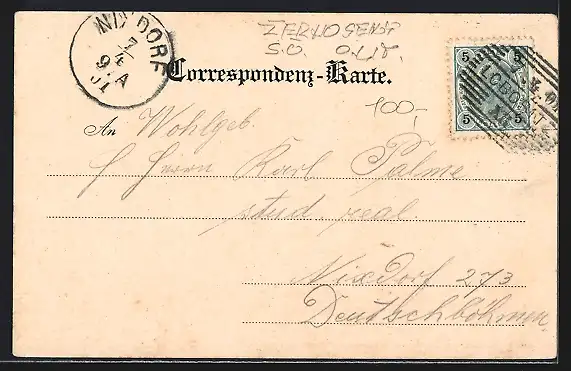 NIXDORF
7/4
9.A
01
ZERNOSEN
S.O.
Correspondenz-Karte.
5 5
5 5
LOBOSITZ
100,-
An Wohlgeb.
Herrn Karl Palme
stud. real
Nixdorf 273
Deutschböhmen